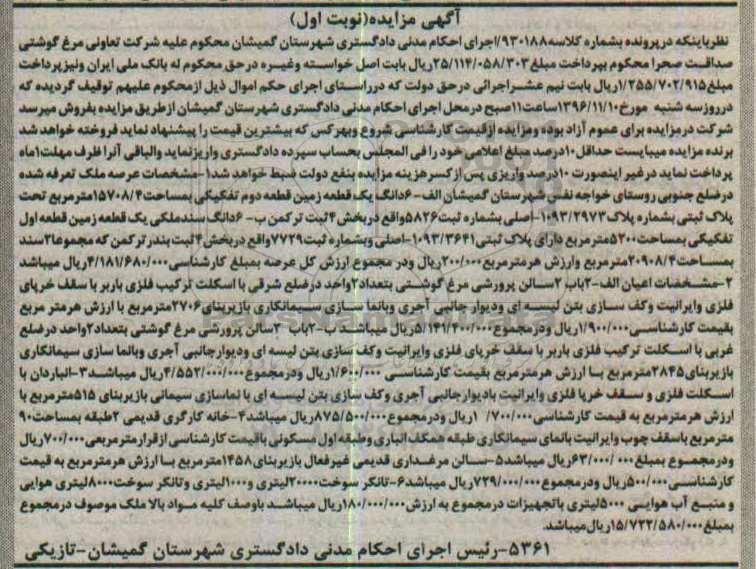 آگهی مزایده(نوبت اول)
نظر باینکه در پرونده بشماره کلاسه ۹۳۰۱۸۸/اجرای احکام مدنی دادگستری شهرستان گمیشان محکوم علیه شرکت تعاونی مرغ گوشتی
صداقت صحرا محکوم بپرداخت مبلغ ۲۵/۱۱۴/۰۵۸/۳۰۳ریال بابت اصل خواسته وغیره در حق محکوم له بانک ملی ایران ونیز پرداخت
مبلغ ۱/۲۵۵/۷۰۲/۹۱۵ریال بابت نیم عشر اجرائی در حق دولت که در راستای اجرای حکم اموال ذیل از محکوم علیهم توقیف گردیده که
در روز سه شنبه مورخ ۱۳۹۶/۱۱/۱۰ساعت ۱۱صبح در محل اجرای احکام مدنی دادگستری شهرستان گمیشان از طریق مزایده بفروش میرسد
شرکت در مزایده برای عموم آزاد بوده ومزایده از قیمت کارشناسی شروع وبهر کس که بیشترین قیمت را پیشنهاد نماید فروخته خواهد شد
برنده مزایده میبایست حداقل ۱۰درصد مبلغ اعلامی خود را فی المجلس بحساب سپرده دادگستری واریز نماید والباقی آنرا ظرف مهلت ۱ماه
پرداخت نماید در غیر اینصورت ۱۰درصد واریزی پس از کسر هزینه مزایده بنفع دولت ضبط خواهد شد ۱-مشخصات عرصه ملک تعرفه شده
در ضلع جنوبی روستای خواجه نفس شهرستان گمیشان الف-۶دانگ یک قطعه زمین قطعه دوم تفکیکی بمساحت ۱۵۷۰۸/۴مترمربع تحت
پلاک ثبتی بشماره پلاک ۱۰۹۳/۲۹۷۳-اصلی بشماره ثبت ۵۸۲۶واقع در بخش ۴ ثبت ترکمن ب-۶دانگ سند ملکی یک قطعه زمین قطعه اول
تفکیکی بمساحت ۵۲۰۰مترمربع دارای پلاک ثبتی ۱۰۹۳/۳۶۴۱-اصلی وبشماره ثبت ۷۷۲۹واقع در بخش ۴ ثبت بندر ترکمن که مجموعا ۲سند
بمساحت ۲۰۹۰۸/۴مترمربع وارزش هر مترمربع ۲۰۰/۰۰۰ریال ودر مجموع ارزش کل عرصه بمبلغ کارشناسی ۴/۱۸۱/۶۸۰/۰۰۰ریال میباشد
۲-مشخصات اعیان الف-۲باب ۲سالن پرورشی مرغ گوشتی بتعداد ۲واحد در ضلع شرقی با اسکلت ترکیب فلزی باربر با سقف خرپای
فلزی وایرانیت وکف سازی بتن لیسه ای ودیوار جانبی آجری وبانما سازی سیمانکاری بازیربنای ۲۷۰۶مترمربع با ارزش هر متر مربع
بقیمت کارشناسی ۱/۹۰۰/۰۰۰ریال ودر مجموع ۵/۱۴۱/۴۰۰/۰۰۰ریال میباشد ب-۲باب ۲سالن پرورشی مرغ گوشتی بتعداد ۲واحد در ضلع
غربی با اسکلت ترکیب فلزی باربر با سقف خرپای فلزی وایرانیت وکف سازی بتن لیسه ای ودیوار جانبی آجری وبانما سازی سیمانکاری
بازیربنای ۲۸۴۵مترمربع با ارزش هر مترمربع بقیمت کارشناسی ۱/۶۰۰/۰۰۰ریال ودر مجموع ۴/۵۵۲/۰۰۰/۰۰۰ریال میباشد ۳-انباردان با
اسکلت فلزی و سقف خرپا فلزی وایرانیت بادیوار جانبی آجری وکف سازی بتن لیسه ای با نماسازی سیمانی بازیربنای ۵۱۵مترمربع با
ارزش هر مترمربع به قیمت کارشناسی ۱/۷۰۰/۰۰۰ریال ودر مجموع ۸۷۵/۵۰۰/۰۰۰ریال میباشد ۴-خانه کارگری قدیمی ۲طبقه بمساحت ۹۰
مترمربع باسقف چوب وایرانیت بانمای سیمانکاری طبقه همکف انباری وطبقه اول مسکونی باقیمت کارشناسی از قرار مترمربعی ۷۰۰/۰۰۰ریال
ودر مجموع بمبلغ ۶۳/۰۰۰/۰۰۰ریال میباشد ۵-سالن مرغداری قدیمی غیرفعال بازیربنای ۱۴۵۸مترمربع با ارزش هر مترمربع به قیمت
کارشناسی ۵۰۰/۰۰۰ریال ودر مجموع ۷۲۹/۰۰۰/۰۰۰ریال میباشد ۶-تانکر سوخت ۲۰۰۰۰لیتری و ۱۰۰۰لیتری وتانکر سوخت ۸۰۰۰لیتری هوایی
و منبع آب هوایی ۵۰۰۰لیتری باتجهیزات در مجموع به ارزش ۱۸۰/۰۰۰/۰۰۰ریال میباشد باوصف کلیه مواد بالا ملک موصوف در مجموع
بمبلغ ۱۵/۷۲۲/۵۸۰/۰۰۰ریال میباشد.
۵۳۶۱-رئیس اجرای احکام مدنی دادگستری شهرستان گمیشان-تازیکی